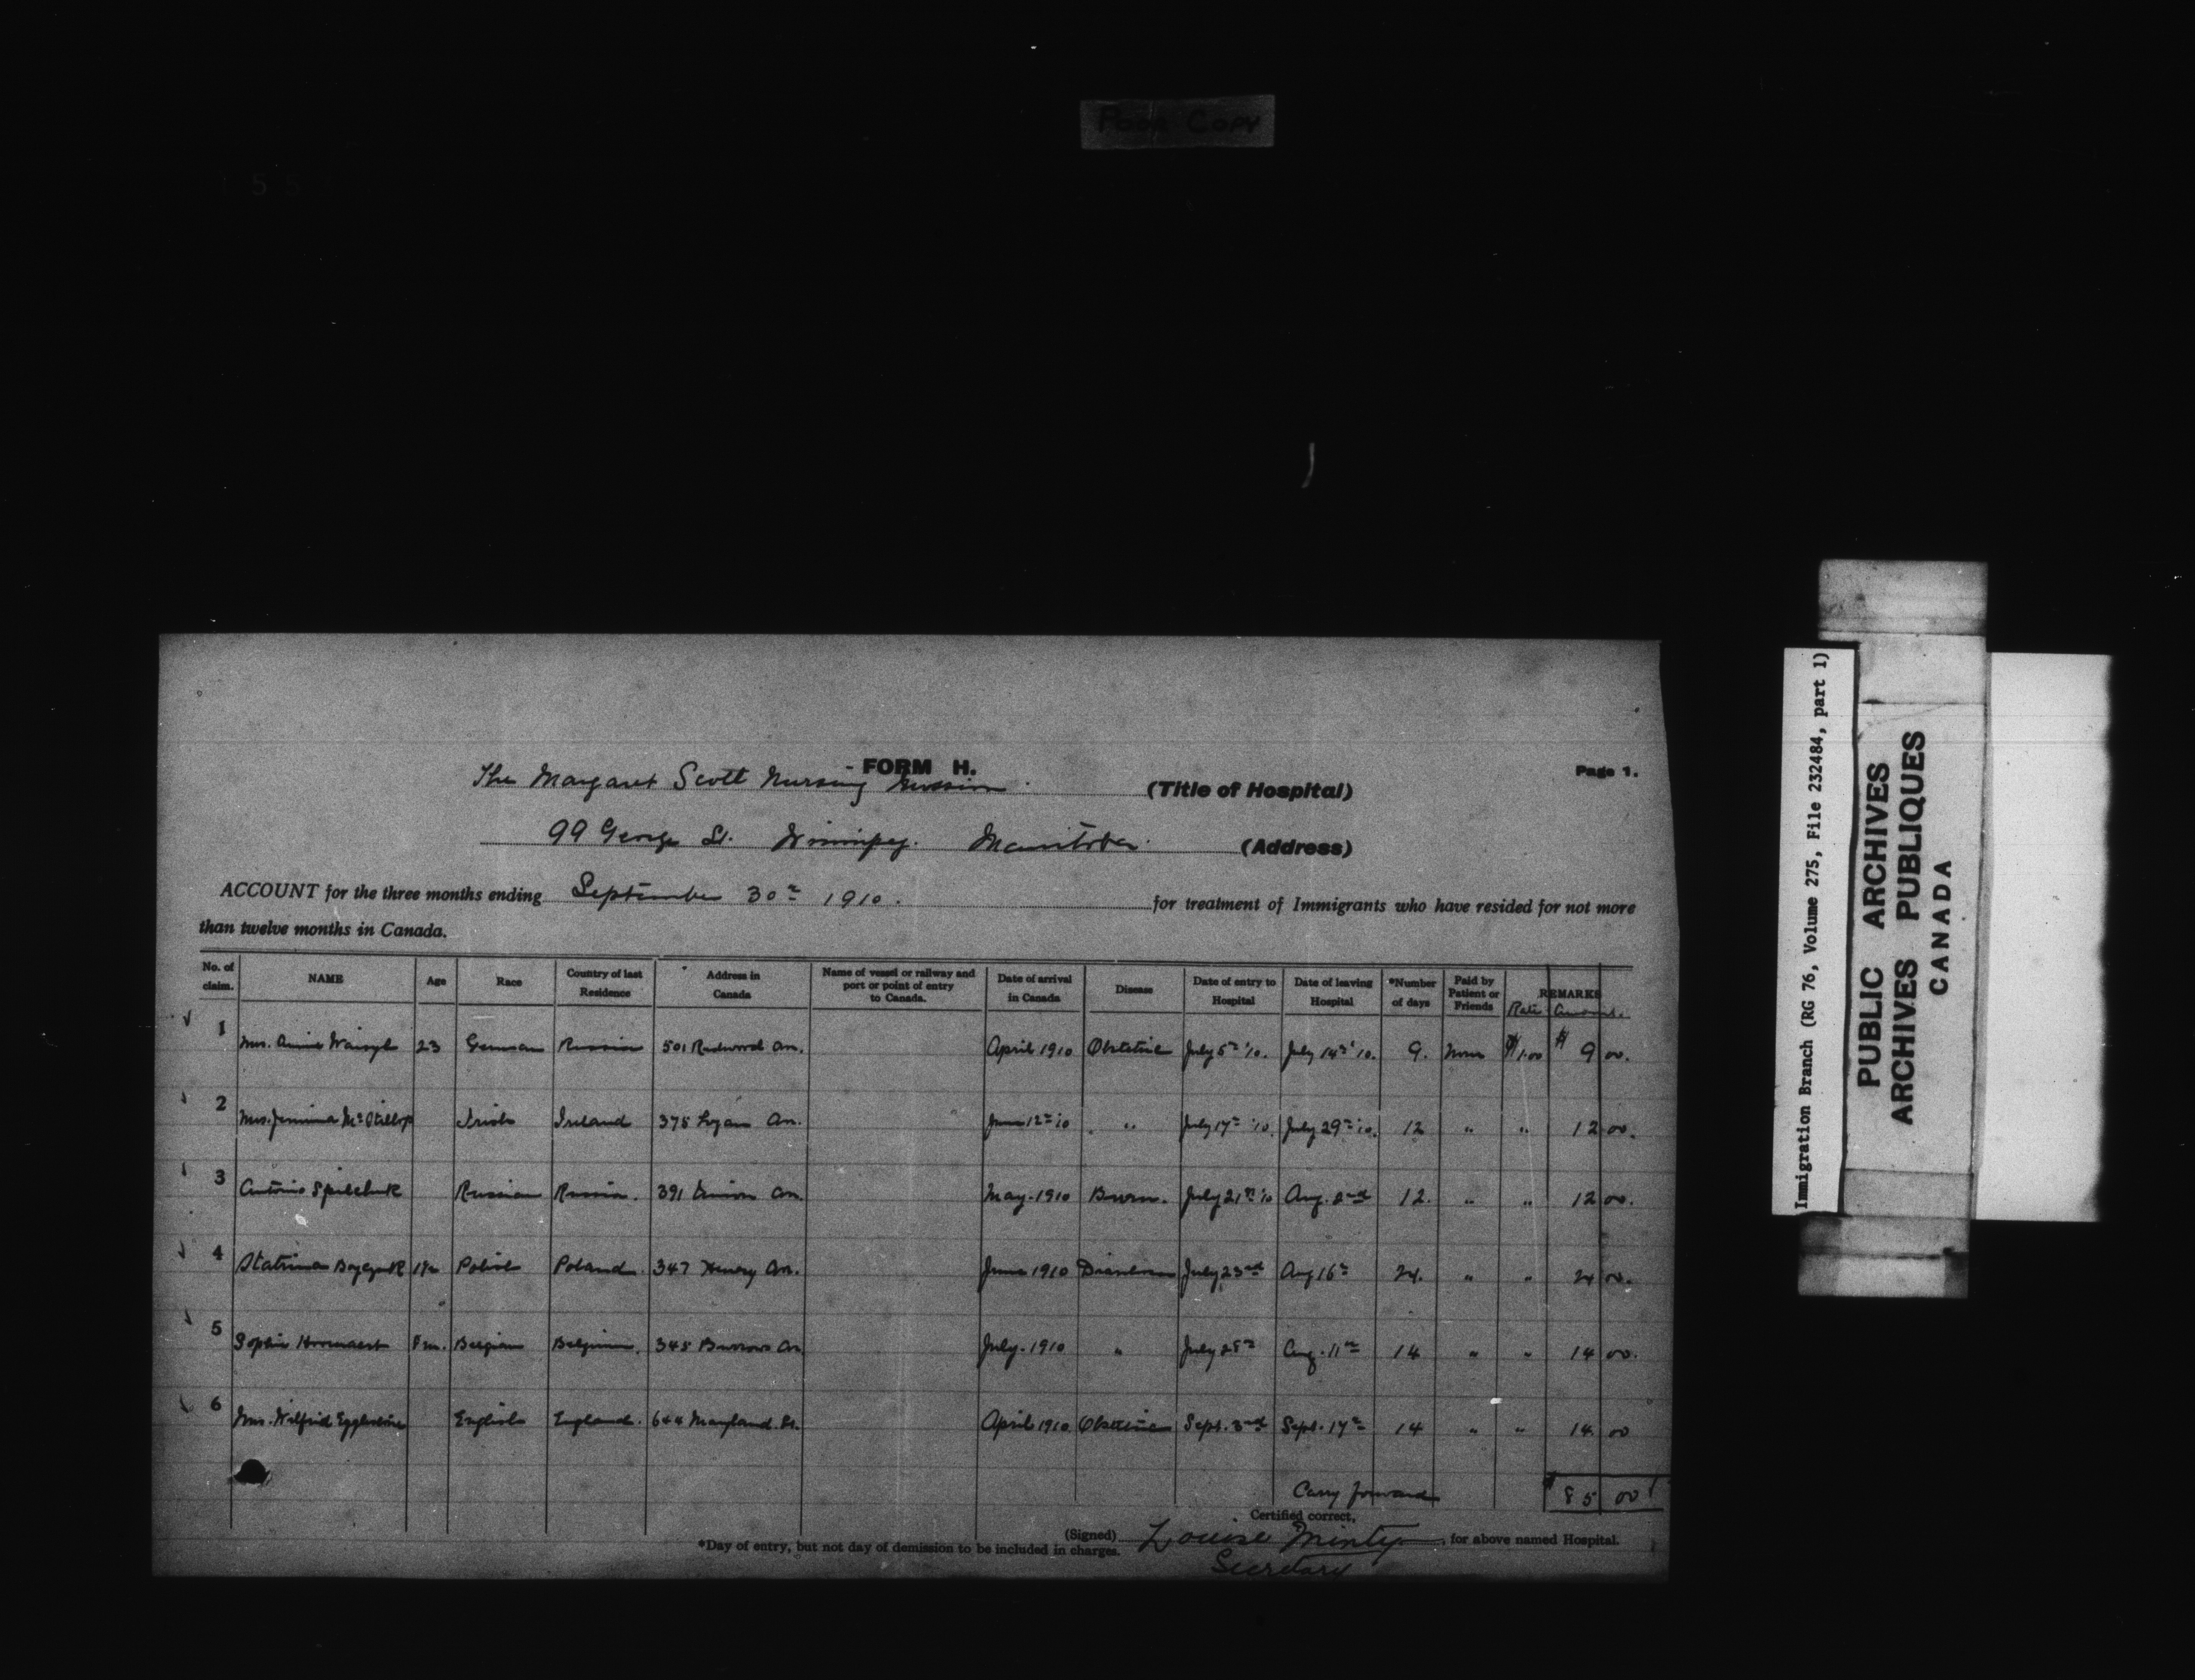 POOR COPY
FORM H.
Page 1.
The Margaret Scott Nursing Mission (Title of Hospital)
99 George St. Winnipeg. Manitoba. (Address)
ACCOUNT for the three months ending September 30th 1910. for treatment of Immigrants who have resided for not more
than twelve months in Canada.
No. of claim. NAME Age Race Country of last Residence Address in Canada Name of vessel or railway and port or point of entry to Canada. Date of arrival in Canada Disease Date of entry to Hospital Date of leaving Hospital *Number of days Paid by Patient or Friends REMARKS Rate Amount.
1 Mrs. Annie 23 German Russia 501 Redwood Av. April 1910 Obstetric July 5th '10. July 14th '10. 9. None $1.00 $ 9 00.
2 Mrs. Jemima Irish Ireland 375 Logan Av. June 12th '10 " July 17th '10. July 29th '10. 12 " " 12 00.
3 Antonio Russian Russia. 391 Av. May-1910 Burn. July 21st '10 Aug. 2nd 12. " " 12 00.
4 Polish Poland. 347 Henry Av. June 1910 Diarrhoea July 23rd Aug 16th 24. " " 24 00.
5 Sophie Belgian Belgium. 345 Burrows Av. July-1910 " July 28th Aug. 11th 14 " " 14 00.
6 Mrs. Wilfrid Eggleston English England. 644 Maryland St. April 1910 Obstetric Sept. 3rd Sept. 17th 14 " " 14 00
Carry forward $ 85 00
Certified correct,
(Signed) Louise Minty, for above named Hospital.
*Day of entry, but not day of demission to be included in charges.
Secretary
Immigration Branch (RG 76, Volume 275, File 232484, part 1)
PUBLIC ARCHIVES
ARCHIVES PUBLIQUES
CANADA